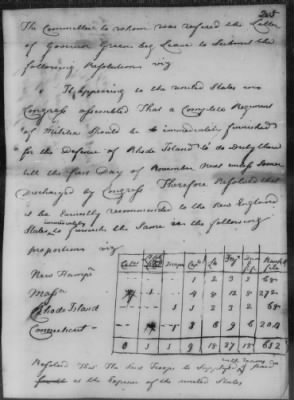 The Committee to whom was refered the Letter
of Govenor Green beg Leave to Submit the
following Resolutions viz
It appearing to the united States in
Congress assembled That a Complete Regiment
of Militia Should be immediately furnished
for the Defence of Rhode Island to do Duty there
till the first Day of November next unless Sooner
Discharged by Congress Therefore Resolved that
it be Earnestly recommended to the New England
States immediately to furnish the Same in the following
proportions viz
New Hampr 1 2 3 68
Massa 1 4 8 12 8 272
Rhode Island 1 2 3 68
Connecticut 1 3 6 9 6 204
0 1 1 9 18 27 18 612
Resolved That The Said Troops be Supplied with
at the Expence of the united States